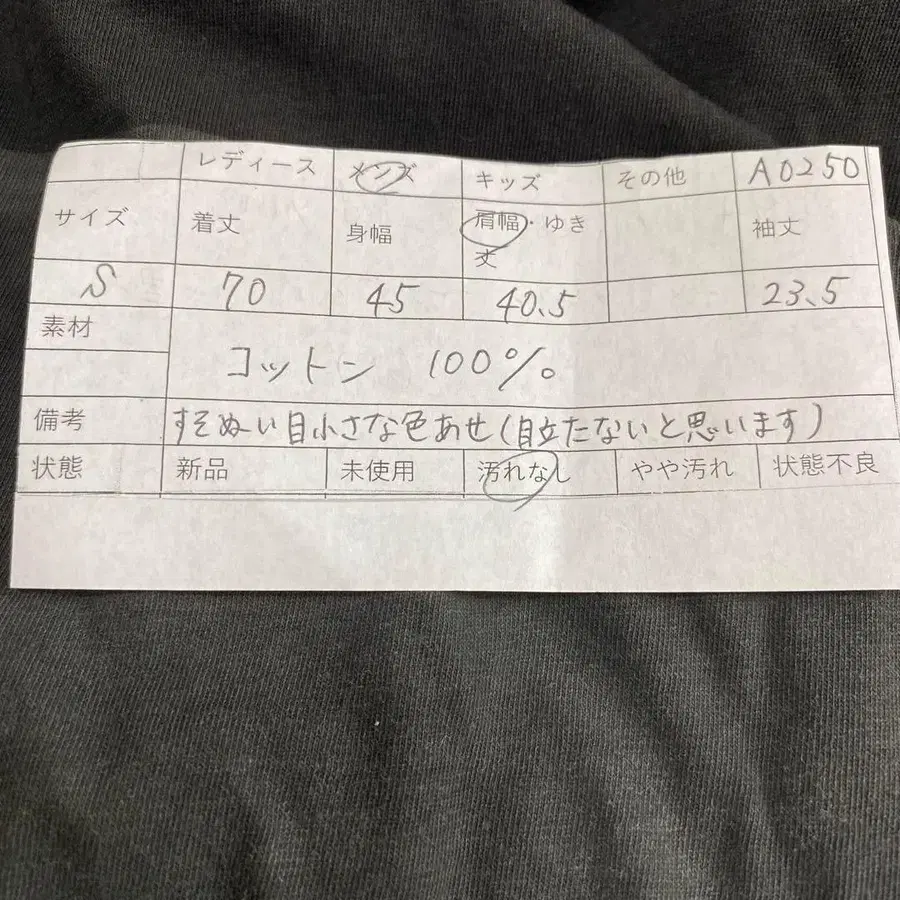 レディース メンズ キッズ その他 A0250
サイズ 着丈 身幅 肩幅・ゆき丈 袖丈
S 70 45 40.5 23.5
素材 コットン 100%
備考 すそぬい目小さな色あせ(目立たないと思います)
状態 新品 未使用 汚れなし やや汚れ 状態不良